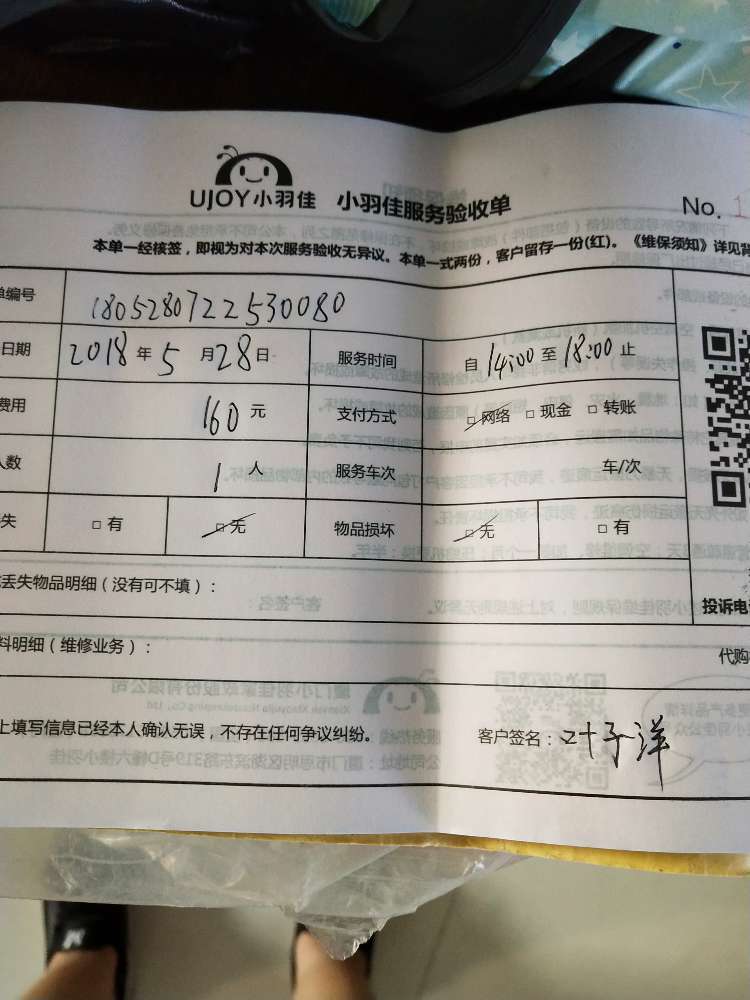 UJOY小羽佳 小羽佳服务验收单
No. 1
本单一经核签，即视为对本次服务验收无异议。本单一式两份，客户留存一份(红)。《维保须知》详见背
单编号 1805280722530080
日期 2018年5月28日 服务时间 自14:00至18:00止
费用 160元 支付方式 □网络 □现金 □转账
人数 1人 服务车次 车/次
失 □有 □无 物品损坏 □无 □有
丢失物品明细（没有可不填）：
投诉电
料明细（维修业务）：
代购
上填写信息已经本人确认无误，不存在任何争议纠纷。 客户签名：叶子洋